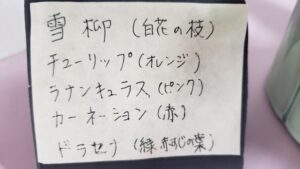 雪柳（白花の枝）
チューリップ（オレンジ）
ラナンキュラス（ピンク）
カーネーション（赤）
ドラセナ（緑 赤すじの葉）